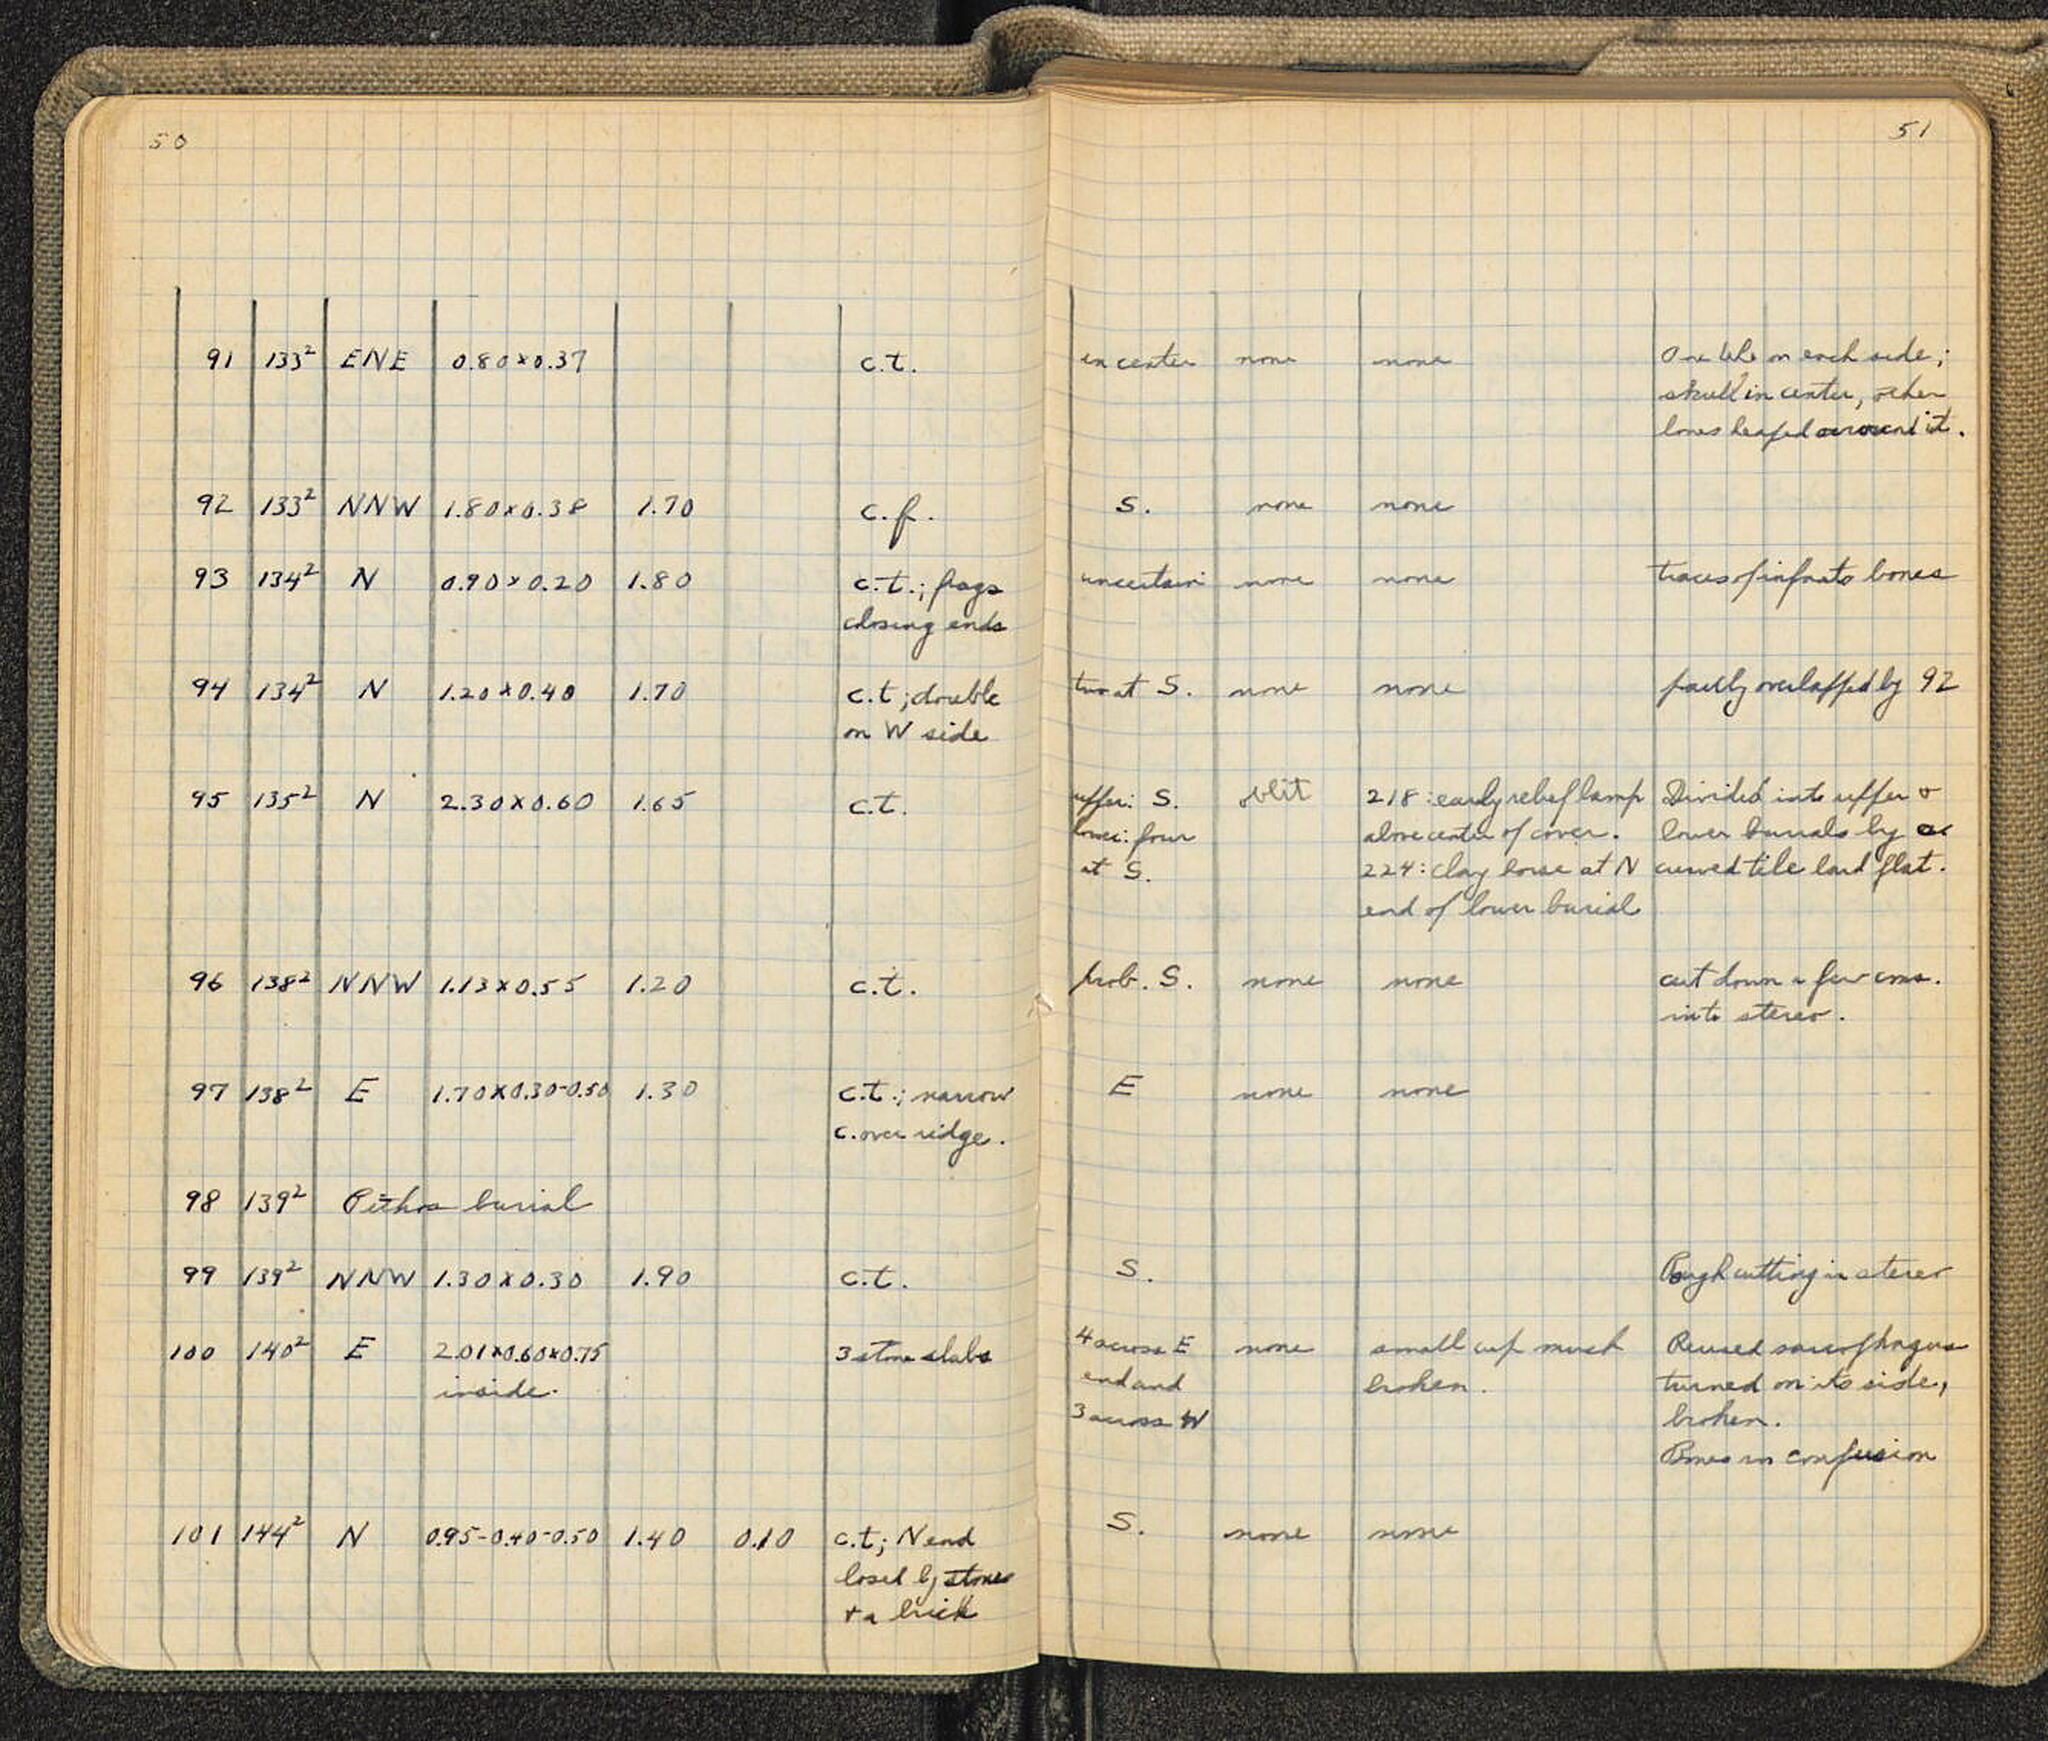 50
91 133² ENE 0.80×0.37 c.t.
92 133² NNW 1.80×0.38 1.70 c.f.
93 134² N 0.90×0.20 1.80 c.t.; frags
closing ends
94 134² N 1.20×0.40 1.70 c.t; double
on W side
95 135² N 2.30×0.60 1.65 c.t.
96 138² NNW 1.13×0.55 1.20 c.t.
97 138² E 1.70×0.30-0.50 1.30 c.t.; narrow
c. over ridge.
98 139² Pithos burial
99 139² NNW 1.30×0.30 1.90 c.t.
100 140² E 2.01×0.60×0.75 3 stone slabs
inside.
101 144² N 0.95-0.40-0.50 1.40 0.10 c.t; N end
closed by stones
+ a brick
51
in center none none One tile on each side;
skull in center, other
bones heaped around it.
S. none none
uncertain none none traces of infants bones
two at S. none none partly overlapped by 92
upper: S. oblit 218: early relief lamp Divided into upper +
lower: four above center of cover. lower burials by a
at S. 224: clay horse at N curved tile laid flat.
end of lower burial
prob. S. none none cut down a few cms.
into stereo.
E none none
S. Rough cutting in stereo
4 across E none small cup much Reused sarcophagus
end and broken. turned on its side,
3 across W broken.
Bones in confusion
S. none none